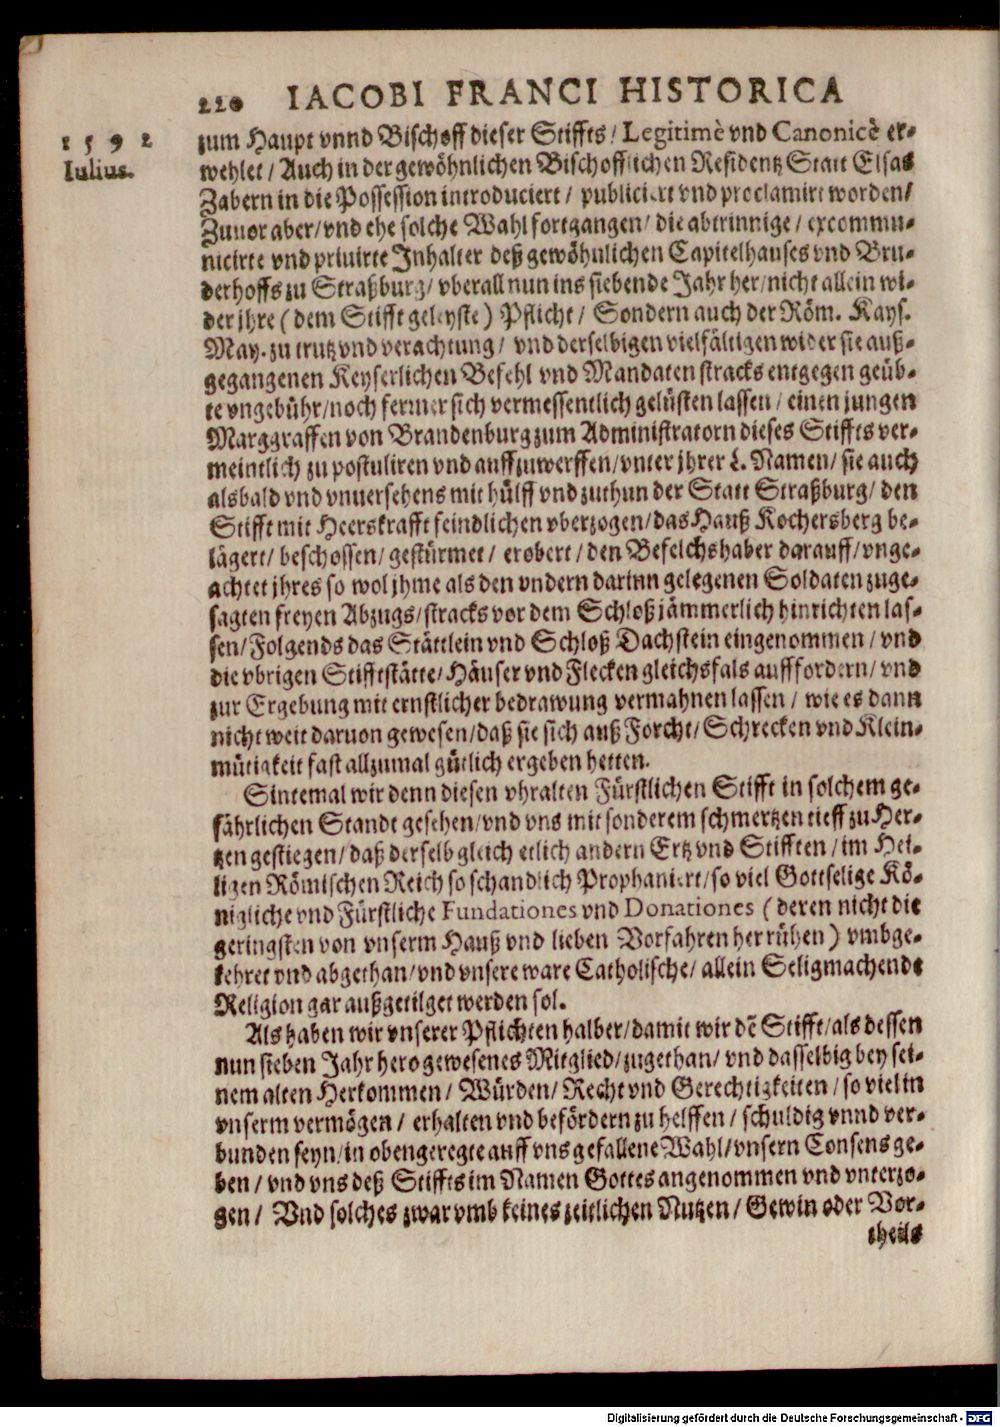 220 IACOBI FRANCI HISTORICA
1592
Iulius.
zum Haupt vnnd Bischoff dieser Stiffts / Legitimè vnd Canonicè er-
wehlet / Auch in der gewöhnlichen Bischofflichen Residentz Statt Elsas
Zabern in die Possession introduciert / publiciert vnd proclamirt worden /
Zuuor aber / vnd ehe solche Wahl fortgangen / die abtrinnige / excommu-
nicirte vnd priuirte Inhalter deß gewöhnlichen Capitelhauses vnd Bru-
derhoffs zu Straßburg / vberall nun ins siebende Jahr her / nicht allein wi-
der jhre ( dem Stifft geleyste ) Pflicht / Sondern auch der Röm. Kays.
May. zu trutz vnd verachtung / vnd derselbigen vielfältigen wider sie auß-
gegangenen Keyserlichen Befehl vnd Mandaten stracks entgegen geüb-
te vngebühr / noch ferner sich vermessentlich gelüsten lassen / einen jungen
Marggraffen von Brandenburg zum Administratorn dieses Stiffts ver-
meintlich zu postuliren vnd auffzuwerffen / vnter jhrer L. Namen / sie auch
alsbald vnd vnuersehens mit hülff vnd zuthun der Statt Straßburg / den
Stifft mit Heerskrafft feindlichen vberzogen / das Hauß Kochersberg be-
lägert / beschossen / gestürmet / erobert / den Befelchshaber darauff / vnge-
achtet jhres so wol jhme als den vndern darinn gelegenen Soldaten zuge-
sagten freyen Abzugs / stracks vor dem Schloß jämmerlich hinrichten las-
sen / Folgends das Stättlein vnd Schloß Dachstein eingenommen / vnd
die vbrigen Stifftstätte / Häuser vnd Flecken gleichsfals aufffordern / vnd
zur Ergebung mit ernstlicher bedrawung vermahnen lassen / wie es dann
nicht weit daruon gewesen / daß sie sich auß Forcht / Schrecken vnd Klein-
mütigkeit fast allzumal gütlich ergeben hetten.
Sintemal wir denn diesen vhralten Fürstlichen Stifft in solchem ge-
fährlichen Standt gesehen / vnd vns mit sonderem schmertzen tieff zu Her-
tzen gestiegen / daß derselb gleich etlich andern Ertz vnd Stifften / im Hei-
ligen Römischen Reich so schandlich Prophaniert / so viel Gottselige Kö-
nigliche vnd Fürstliche Fundationes vnd Donationes ( deren nicht die
geringsten von vnserm Hauß vnd lieben Vorfahren herrühen ) vmbge-
kehret vnd abgethan / vnd vnsere ware Catholische / allein Seligmachende
Religion gar außgetilget werden sol.
Als haben wir vnserer Pflichten halber / damit wir dē Stifft / als dessen
nun sieben Jahr hero gewesenes Mitglied / zugethan / vnd dasselbig bey sei-
nem alten Herkommen / Würden / Recht vnd Gerechtigkeiten / so viel in
vnserm vermögen / erhalten vnd befördern zu helffen / schuldig vnnd ver-
bunden seyn / in obengeregte auff vns gefallene Wahl / vnsern Consens ge-
ben / vnd vns deß Stiffts im Namen Gottes angenommen vnd vnterzo-
gen / Vnd solches zwar vmb keines zeitlichen Nutzen / Gewin oder Vor-
theils
Digitalisierung gefördert durch die Deutsche Forschungsgemeinschaft - DFG